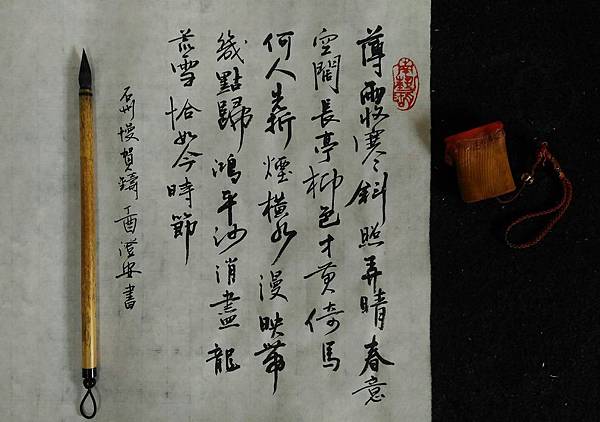 薄雨收寒斜照弄晴春意
空闊長亭柳色才黃倚馬
何人先折煙橫水漫映帶
幾點歸鴻平沙消盡龍
荒雪恰如今時節
石州慢賀鑄丁酉澄安書